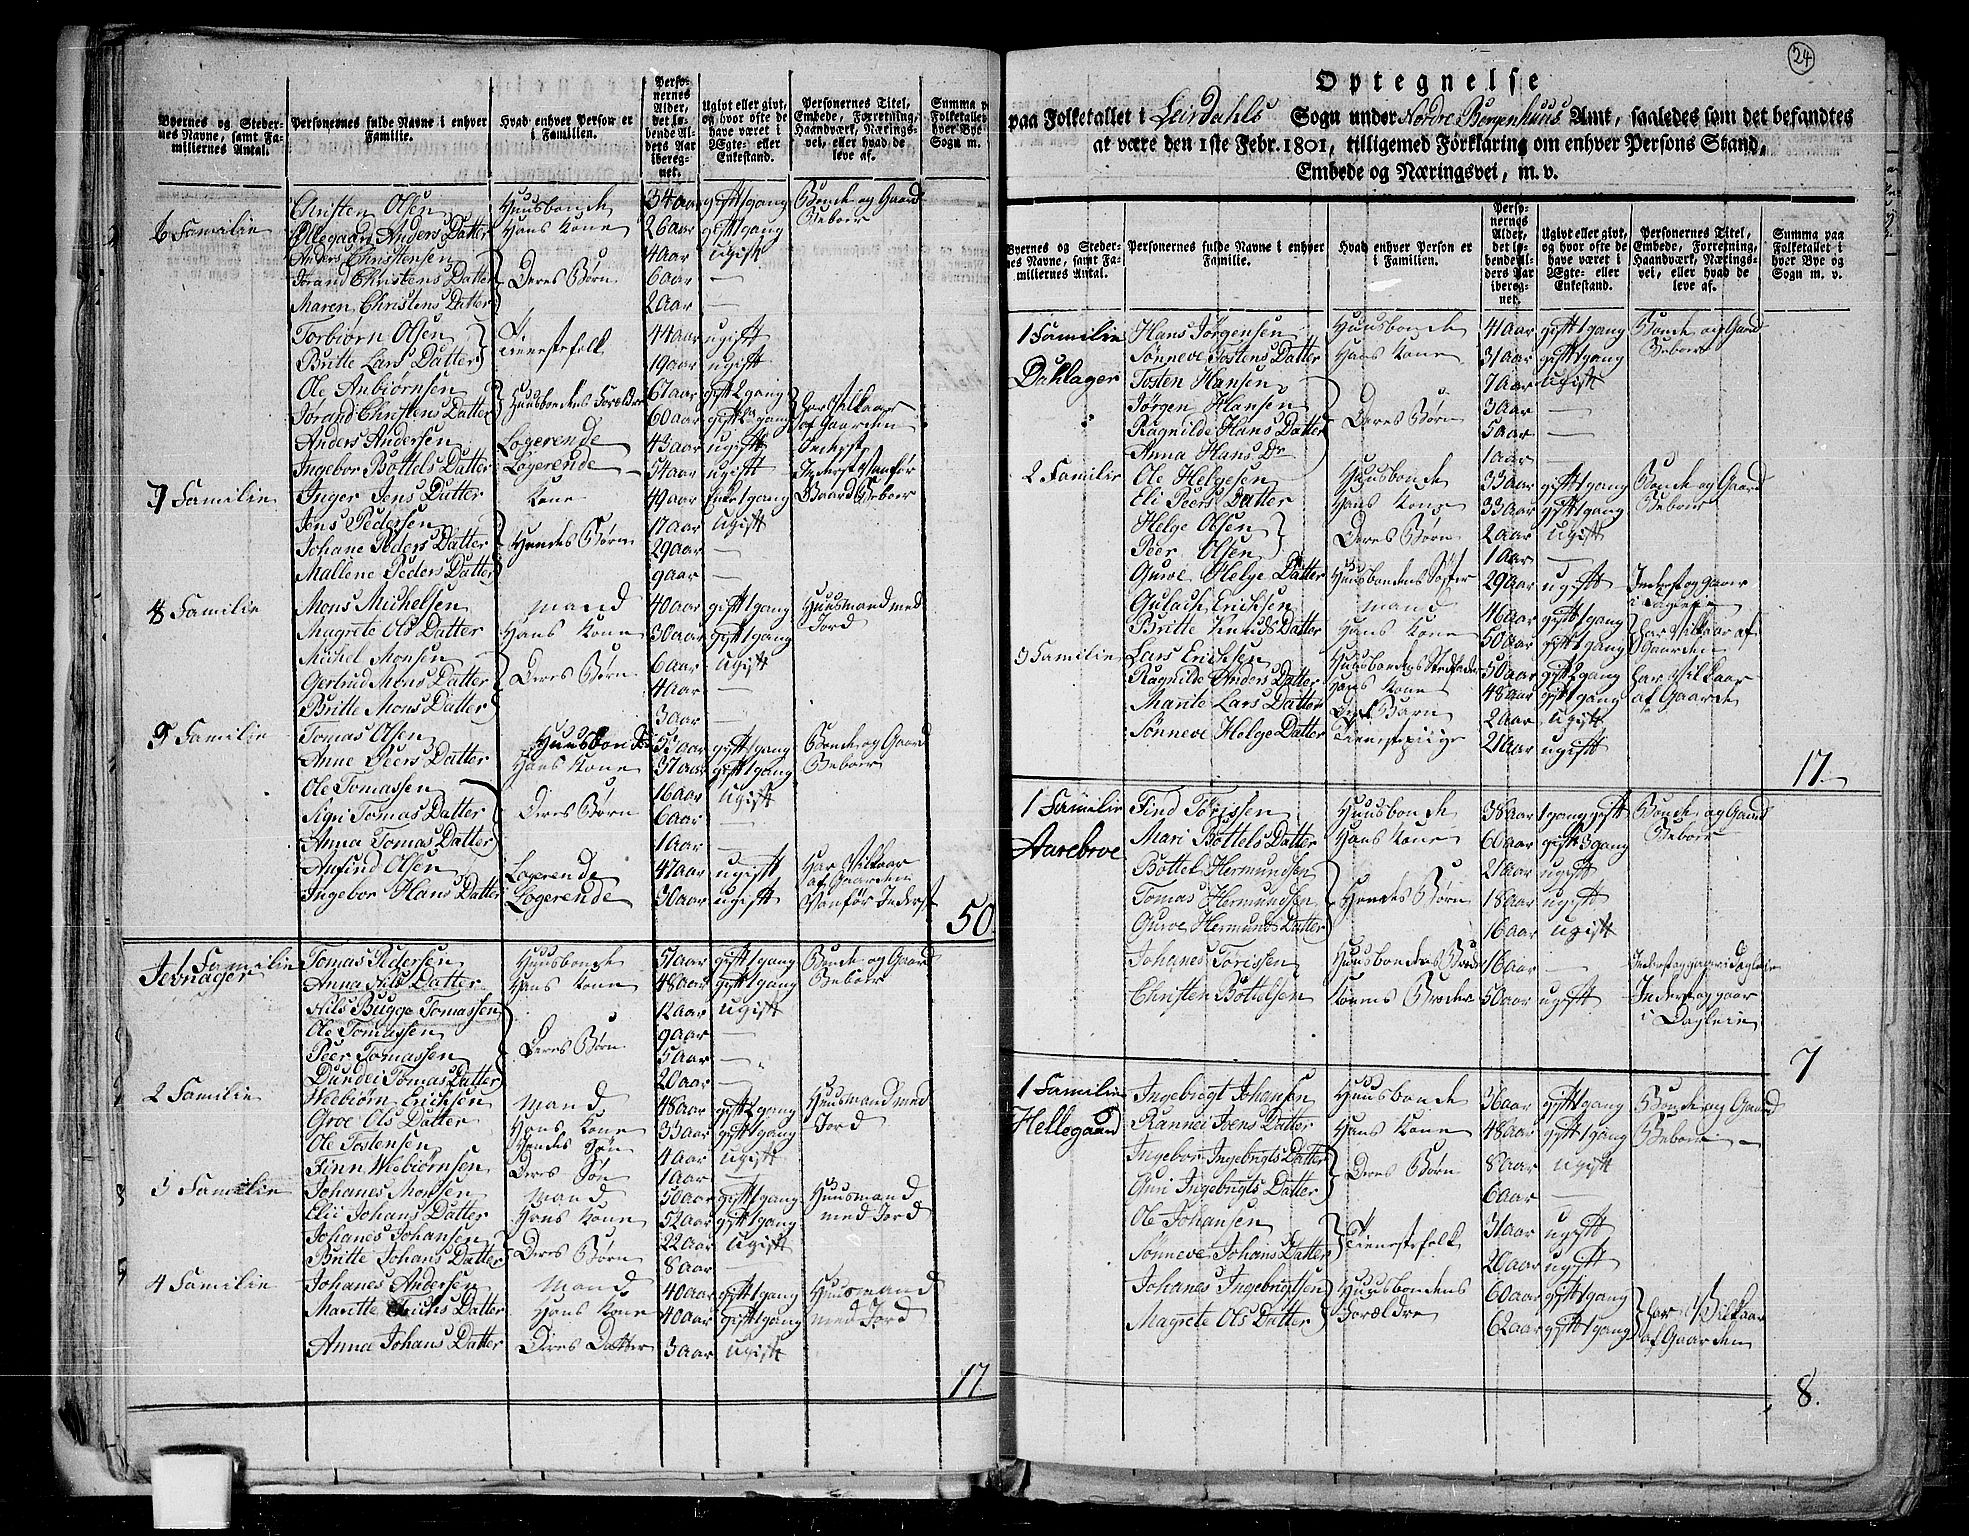 Byernes og Steder- Personernes fulde Navne i enhver Hvad enhver Person er Perso-nernes Alder, Ugivt eller givt, Personernes Titel, Summa paa
nes Navne, samt Fa- Familie. i Familien. det lø-bende Al- og hvor ofte de Embede, Forretning, Folketallet i
miliernes Antal. ders Aar ibereg-net. have været i Ægte- eller Enkestand. Haandværk, Nærings-vei, eller hvad de leve af. hver Bye og Sogn m. v.
Christen Olsen Huusbonde 34 aar gift 1 gang Bonde og Gaard
6 Familie Ollegaard Anders Datter Hans Kone 26 aar gift 1 gang Beboer
Anders Christensen 4 aar ugift
Jorand Christens Datter Deres Børn 6 aar —
Maren Christens Datter 2 aar —
Torbiørn Olsen Tienestefolk 44 aar ugift
Britte Lars Datter 19 aar ugift
Ole Anbiørnsen Huusbondens Forældre 67 aar gift 2 gang har Vilkaar
Jorand Christens Datter 60 aar gift gang af Gaarden
Anders Andersen Logerende 43 aar ugift Inderst
Ingebor Bottels Datter Logerende 54 aar ugift Inderst Vanfør
7 Familie Inger Jens Datter Kone 49 aar Enke 1 gang Gaard Beboer
Jens Pedersen 17 aar ugift
Johane Peders Datter Hendes Børn 29 aar —
Mallene Peders Datter 9 aar —
8 Familie Mons Michelsen Mand 40 aar gift 1 gang Huusmand med
Magrete Ols Datter Hans Kone 30 aar gift 1 gang Jord
Michel Monsen 6 aar ugift
Gertrud Mons Datter Deres Børn 4 aar —
Britte Mons Datter 3 aar —
9 Familie Tomas Olsen Huusbonde 55 aar gift 1 gang Bonde og Gaard
Anne Peers Datter Hans Kone 37 aar gift 1 gang Beboer
Ole Tomassen 16 aar ugift
Sigri Tomas Datter Deres Børn 6 aar —
Anna Tomas Datter 1 aar —
Anfind Olsen Logerende 47 aar ugift Har Vilkaar af Gaarden
Ingebor Hans Datter Logerende 30 aar ugift Vanfør Inderst 50
1 Familie Tomas Pedersen Huusbonde 51 aar gift 1 gang Bonde og Gaard
Jevnager Anna Nils Datter Hans Kone 48 aar gift 1 gang Beboer
Nils Bugge Tomassen 12 aar ugift
Ole Tomassen 9 aar —
Peer Tomassen Deres Børn 5 aar —
Dundei Tomas Datter 20 aar —
2 Familie Webiørn Erichsen Mand 48 aar gift 2 gang Huusmand med
Groe Ols Datter Hans Kone 33 aar gift 1 gang Jord
Ole Tostensen Hendes Søn 4 aar ugift
Finn Webiørnsen Deres Søn 1 aar —
3 Familie Johanes Monsen Mand 50 aar gift 1 gang Huusmand
Elii Johans Datter Hans Kone 52 aar gift 1 gang med Jord
Johanes Johansen 22 aar ugift
Britte Johans Datter Deres Børn 8 aar —
4 Familie Johanes Andersen Mand 40 aar gift 1 gang Huusmand
Mantte Erichs Datter Hans Kone 40 aar gift 1 gang med Jord
Anna Johans Datter Deres Datter 3 aar ugift
17
24
Optegnelse
paa Folketallet i Leirdahls Sogn under Nordre Bergenhuus Amt, saaledes som det befandtes
at være den 1ste Febr. 1801, tilligemed Forklaring om enhver Persons Stand,
Embede og Næringsvei, m. v.
Byernes og Steder- Personernes fulde Navne i enhver Hvad enhver Person er Perso-nernes Alder, Ugivt eller givt, Personernes Titel, Summa paa
nes Navne, samt Fa- Familie. i Familien. det lø-bende Al- og hvor ofte de Embede, Forretning, Folketallet i
miliernes Antal. ders Aar ibereg-net. have været i Ægte- eller Enkestand. Haandværk, Nærings-vei, eller hvad de leve af. hver Bye og Sogn m. v.
1 Familie Hans Jørgensen Huusbonde 41 aar gift 1 gang Bonde og Gaard
Sønneve Tostens Datter Hans Kone 31 aar gift 1 gang Beboer
Dahlager Tosten Hansen 7 aar ugift
Jørgen Hansen Deres Børn 3 aar —
Ragnilde Hans Datter 5 aar —
Anna Hans Dr 1 aar —
2 Familie Ole Helgesen Huusbonde 33 aar gift 1 gang Bonde og Gaard
Eli Peers Datter Hans Kone 33 aar gift 1 gang Beboer
Helge Olsen Deres Børn 2 aar ugift
Peer Olsen 1 aar —
Gurve Helge Datter Huusbondens Søster 29 aar ugift Inderst og gaaer i
Gulach Erichsen Mand 46 aar gift 1 gang har Vilkaar af
Britte Knuds Datter Hans Kone 50 aar gift 1 gang Gaarden
3 Familie Lars Erichsen Huusbondens 50 aar gift 2 gang har Vilkaar
Ragnilde Anders Datter Hans Kone 48 aar gift 1 gang af Gaarde
Mantte Lars Datter Deres Barn 2 aar ugift
Sønneve Helge Datter Tienestepiige 21 aar ugift
17
1 Familie Find Torissen Huusbonde 38 aar 1 gang gift Bonde og Gaard
Mari Bottels Datter Hans Kone 60 aar gift 3 gang Beboer
Aarebroe Bottel Hermundsen 21 aar ugift
Tomas Hermundsen Hendes Børn 18 aar ugift
Gurve Hermunds Datter 16 aar ugift
Johanes Torissen Huusbondens Broder 16 aar — Inderst og gaaer i Dagleie
Christen Bottelsen Konens Broder 50 aar ugift Inderst og gaaer
i Dagleie
7
1 Familie Ingebrigt Johansen Huusbonde 36 aar gift 1 gang Bonde og Gaard
Hellegaard Rannei Ivens Datter Hans Kone 48 aar gift 1 gang Beboer
Ingebor Ingebrigts Datter Deres Børn 8 aar ugift
Guri Ingebrigts Datter 6 aar —
Ole Johansen Tienestefolk 31 aar ugift
Sønneve Johans Datter 20 aar ugift
Johanes Ingebrigtsen Huusbondens 60 aar gift 1 gang har Vilkaar
Magrete Ols Datter Forældre 62 aar gift 1 gang af Gaarden
8.